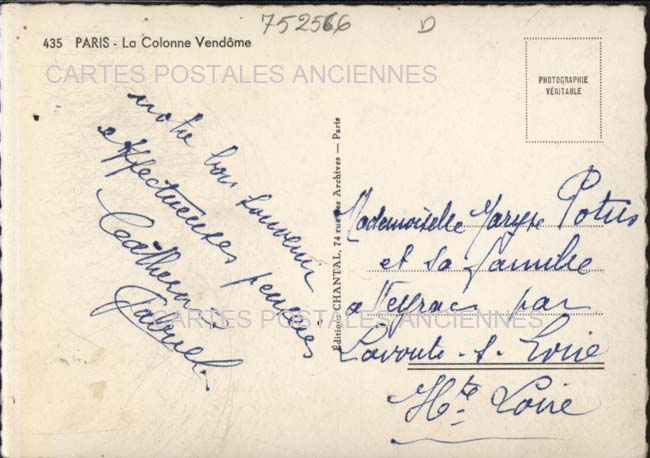 752566 D
435 PARIS - La Colonne Vendôme
CARTES POSTALES ANCIENNES
PHOTOGRAPHIE
VÉRITABLE
notre bon souvenir
affectueuses pensées
Gabriel
Éditions CHANTAL, 74 rue des Archives — Paris
Mademoiselle Maryse
et sa famille
a Veyrac par
Lavoute-s-Loire
Hte Loire
CARTES POSTALES ANCIENNES